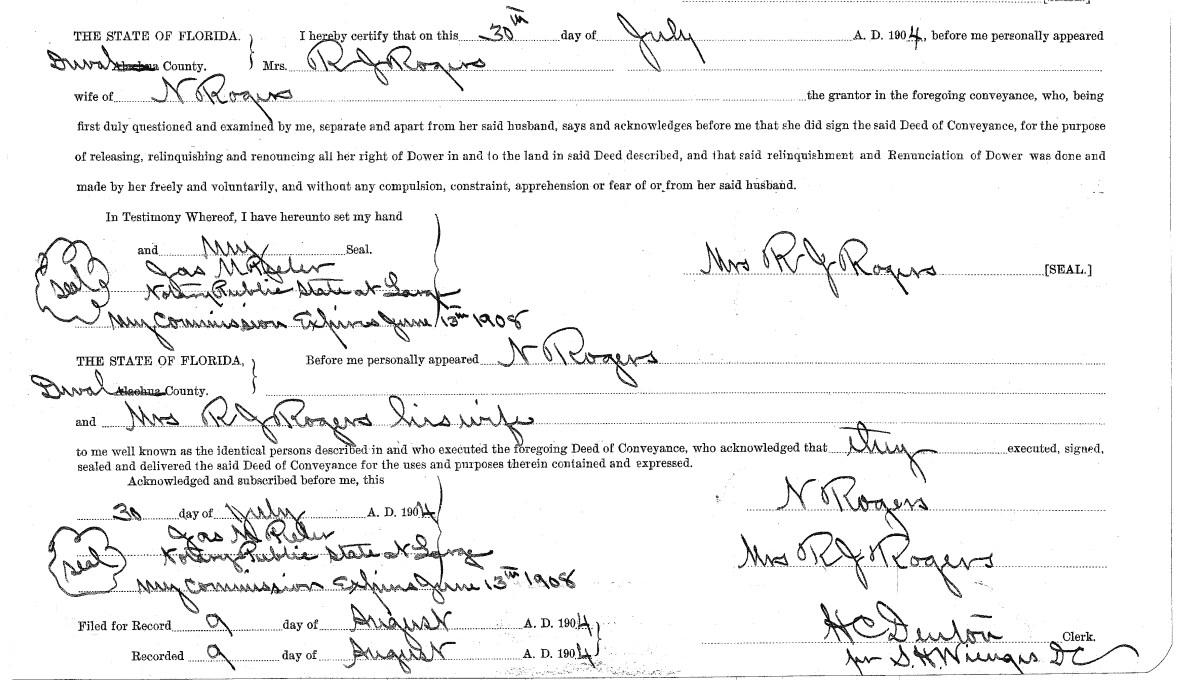 [SEAL.]
THE STATE OF FLORIDA. I hereby certify that on this 30th day of July A. D. 1904, before me personally appeared
Duval Alachua County. Mrs. R J Rogers
wife of N Rogers the grantor in the foregoing conveyance, who, being
first duly questioned and examined by me, separate and apart from her said husband, says and acknowledges before me that she did sign the said Deed of Conveyance, for the purpose
of releasing, relinquishing and renouncing all her right of Dower in and to the land in said Deed described, and that said relinquishment and Renunciation of Dower was done and
made by her freely and voluntarily, and without any compulsion, constraint, apprehension or fear of or from her said husband.
In Testimony Whereof, I have hereunto set my hand
and my Seal.
Mrs R J Rogers [SEAL.]
seal
Jas M
Notary Public State at Large
My Commission Expires June 13th 1908
THE STATE OF FLORIDA, Before me personally appeared N Rogers
Duval Alachua County.
and Mrs R J Rogers his wife
to me well known as the identical persons described in and who executed the foregoing Deed of Conveyance, who acknowledged that they executed, signed,
sealed and delivered the said Deed of Conveyance for the uses and purposes therein contained and expressed.
Acknowledged and subscribed before me, this
30 day of July A. D. 1904
N Rogers
seal
Jas M
Notary Public State at Large
Mrs R J Rogers
My Commission Expires June 13th 1908
Filed for Record 9 day of August A. D. 1904
H C Denton Clerk.
Recorded 9 day of August A. D. 1904
per S. H. D C